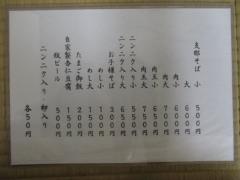 支那そば 小 500円
大 600円
肉小 650円
肉大 750円
肉玉小 700円
肉玉大 800円
ニンニク入り小 550円
ニンニク入り大 650円
お子様そば 300円
めし小 100円
めし大 150円
たまご御飯 200円
自家製杏仁豆腐 150円
瓶ビール 500円
ニンニク入り 卵入り 各50円